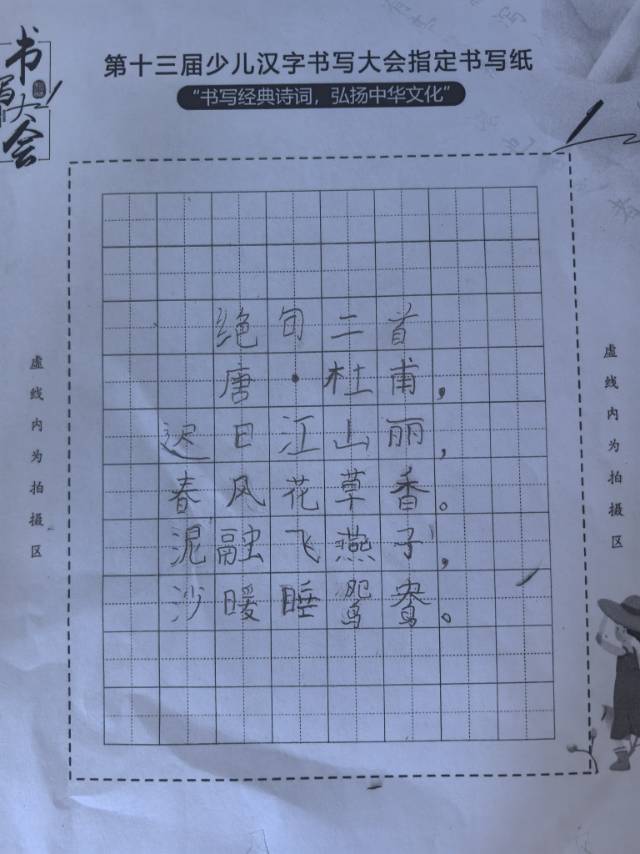 书写大会
第十三届少儿汉字书写大会指定书写纸
“书写经典诗词，弘扬中华文化”
绝句二首
唐·杜甫，
迟日江山丽，
春风花草香。
泥融飞燕子，
沙暖睡鸳鸯。
虚线内为拍摄区
虚线内为拍摄区